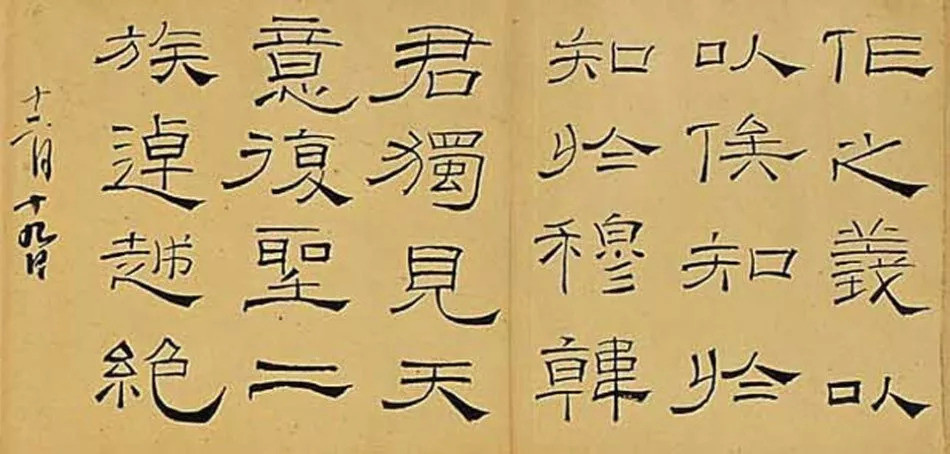 作之義以
以俟知於
知於穆韓
君獨見天
意復聖二
族逴越絕
十一月十九日